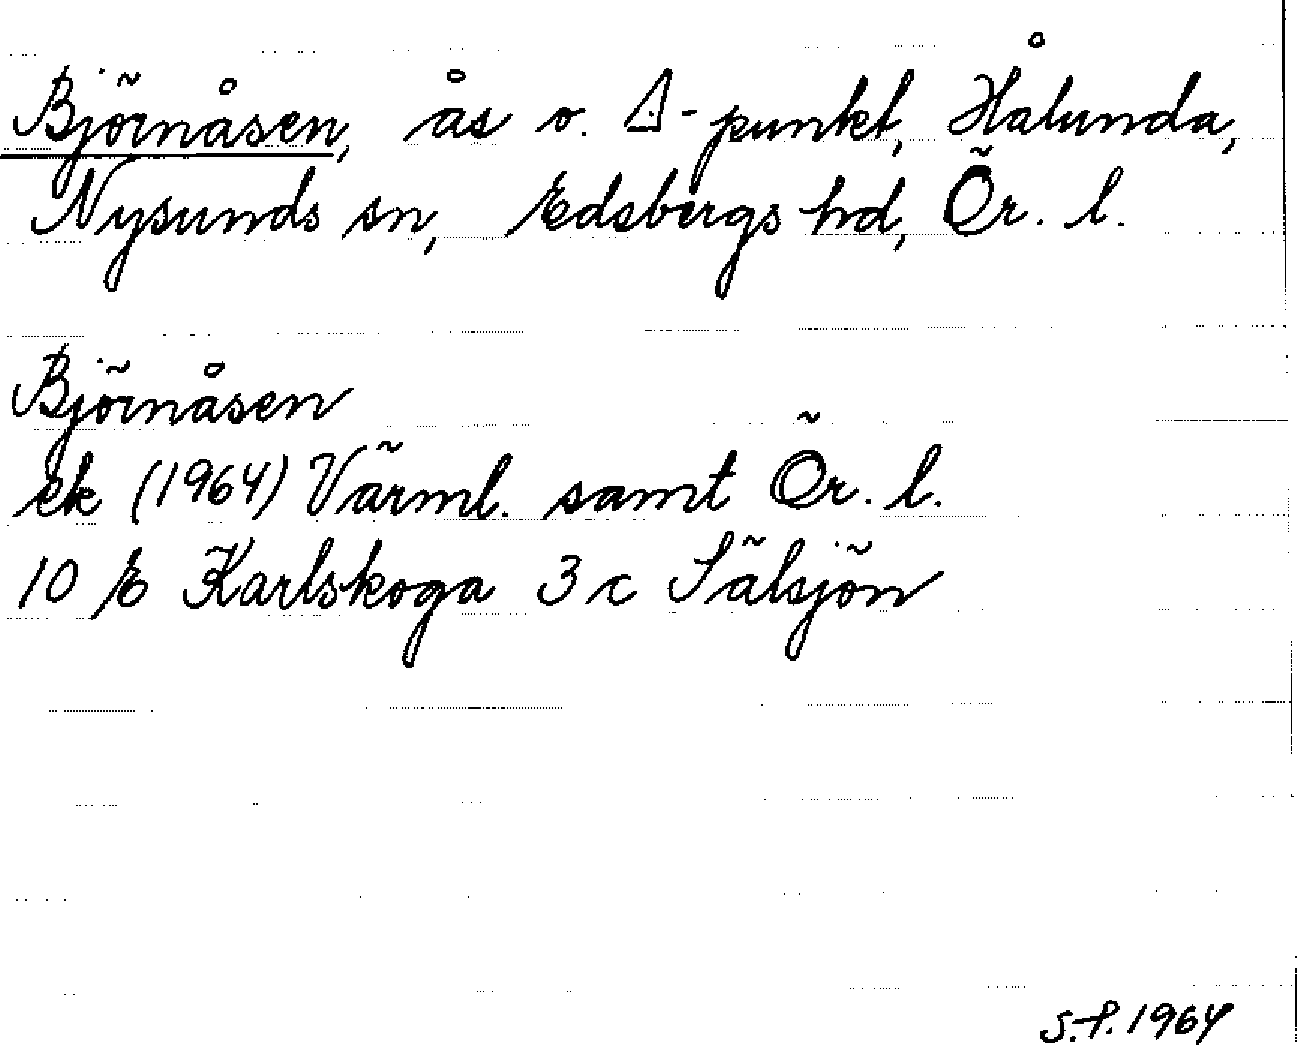 Björnåsen, ås o. Δ-punkt, Hålunda,
Nysunds sn, Edsbergs hd, Ör. l.
Björnåsen
ek (1964) Värml. samt Ör. l.
10 E Karlskoga 3 c Sälsjön
S.P. 1964